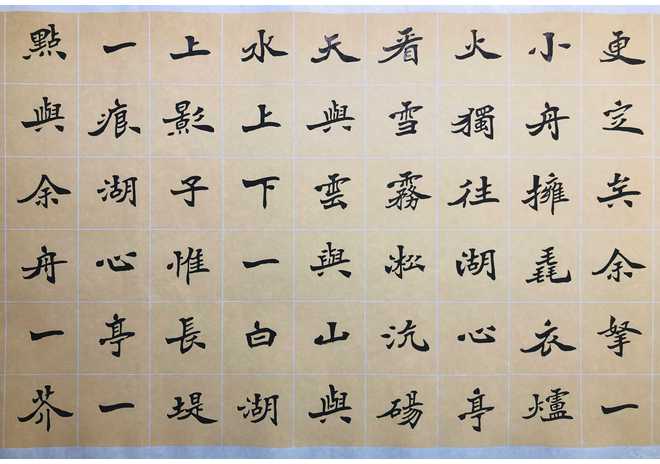 更定矣余拏一
小舟擁毳衣爐
火獨往湖心亭
看雪霧凇沆碭
天與雲與山與
水上下一白湖
上影子惟長堤
一痕湖心亭一
點與余舟一芥